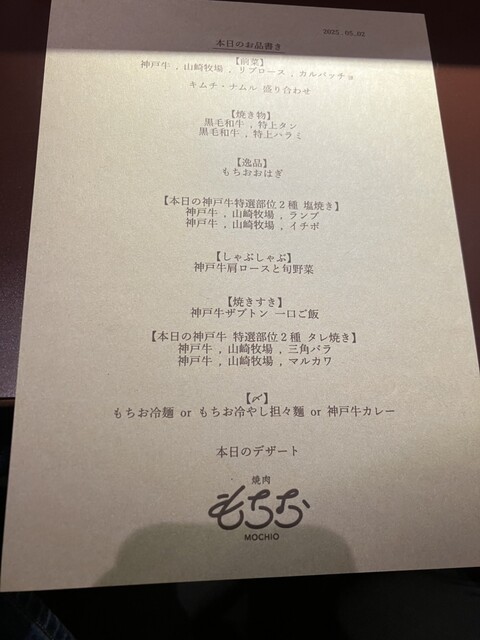 2025.05.02
本日のお品書き
【前菜】
神戸牛 , 山崎牧場 , リブロース , カルパッチョ
キムチ・ナムル 盛り合わせ
【焼き物】
黒毛和牛 , 特上タン
黒毛和牛 , 特上ハラミ
【逸品】
もちおおはぎ
【本日の神戸牛特選部位2種 塩焼き】
神戸牛 , 山崎牧場 , ランプ
神戸牛 , 山崎牧場 , イチボ
【しゃぶしゃぶ】
神戸牛肩ロースと旬野菜
【焼きすき】
神戸牛ザブトン 一口ご飯
【本日の神戸牛 特選部位2種 タレ焼き】
神戸牛 , 山崎牧場 , 三角バラ
神戸牛 , 山崎牧場 , マルカワ
【〆】
もちお冷麺 or もちお冷やし担々麺 or 神戸牛カレー
本日のデザート
焼肉
もちお
MOCHIO